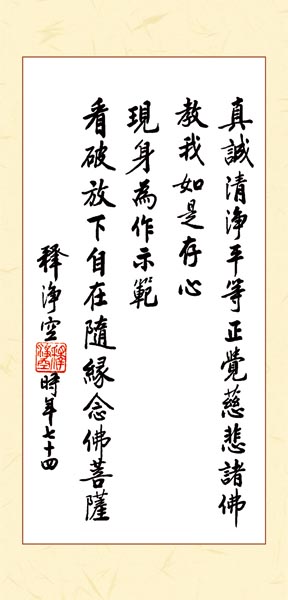 真誠清淨平等正覺慈悲諸佛
教我如是存心
現身為作示範
看破放下自在隨緣念佛菩薩
釋淨空
時年七十四